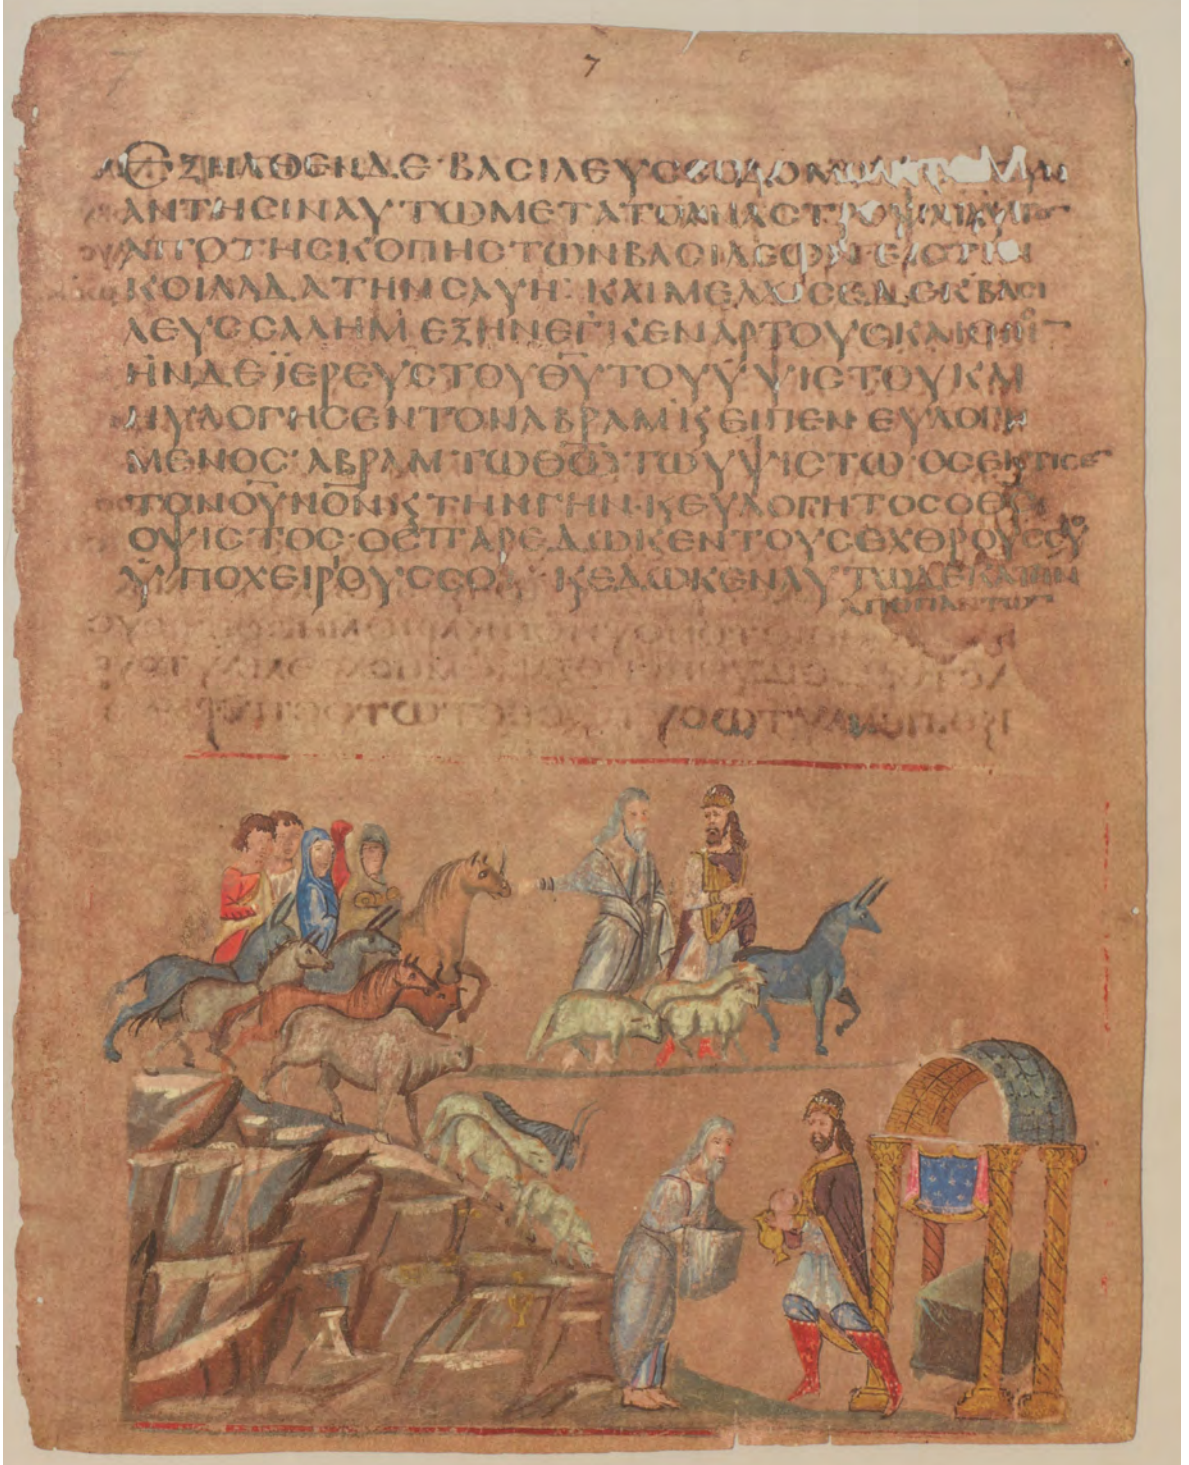 7
7
ΕΞΗΛΘΕΝΔΕ·ΒΑϹΙΛΕΥϹϹΟΔΟΜΩΝ
ΑΝΤΗϹΙΝΑΥΤΩΜΕΤΑΤΟΑΝΑϹΤΡΕΨΑΙΑΥΤΟ
ΑΠΟΤΗϹΚΟΠΗϹΤΩΝΒΑϹΙΛΕΩΝ·ΕΙϹΤΗΝ
ΚΟΙΛΑΔΑΤΗΝϹΑΥΗ· ΚΑΙΜΕΛΧΙϹΕΔΕΚΒΑϹΙ
ΛΕΥϹϹΑΛΗΜ ΕΞΗΝΕΓΚΕΝΑΡΤΟΥϹΚΑΙ
ΗΝΔΕΪΕΡΕΥϹΤΟΥΘ̅Υ̅ΤΟΥΥΨΙϹΤΟΥΚΑΙ
ΗΥΛΟΓΗϹΕΝΤΟΝΑΒΡΑΜ·ΚϚΕΙΠΕΝ·ΕΥΛΟΓΗ
ΜΕΝΟϹ·ΑΒΡΑΜ·ΤΩΘ̅Ω̅ΤΩΥΨΙϹΤΩ·ΟϹΕΚΤΙϹΕ
ΤΟΝΟΥ̅Ν̅Ο̅Ν̅ΚϚΤΗΝΓΗΝ·ΚϚΕΥΛΟΓΗΤΟϹΟΘ̅Ϲ̅
ΟΥΨΙϹΤΟϹ·ΟϹΠΑΡΕΔΩΚΕΝΤΟΥϹΕΧΘΡΟΥϹϹΟΥ
ΥΠΟΧΕΙΡΟΥϹϹΟΙ· ΚϚΕΔΩΚΕΝΑΥΤΩΔΕΚΑΤΗΝ
ΑΠΟΠΑΝΤΩΝ